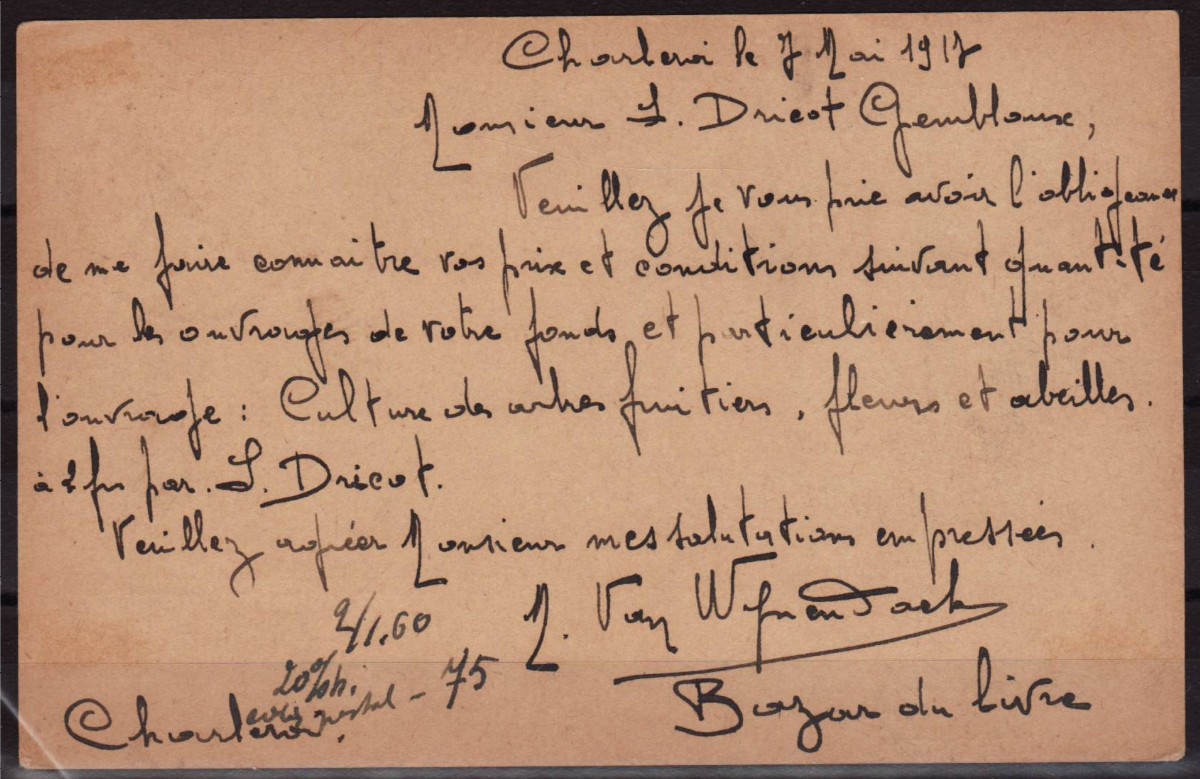 Charleroi le 7 Mai 1917
Monsieur L. Dricot Gembloux,
Veuillez je vous prie avoir l'obligeance
de me faire connaitre vos prix et conditions suivant quantité
pour les ouvrages de votre fonds et particulièrement pour
l'ouvrage : Culture des arbres fruitiers, fleurs et abeilles.
à 2 frs par. L. Dricot.
Veuillez agréer Monsieur mes salutations empressées.
M. Van
1.60
20%
postal - 75
Bazar du livre
Charleroi.